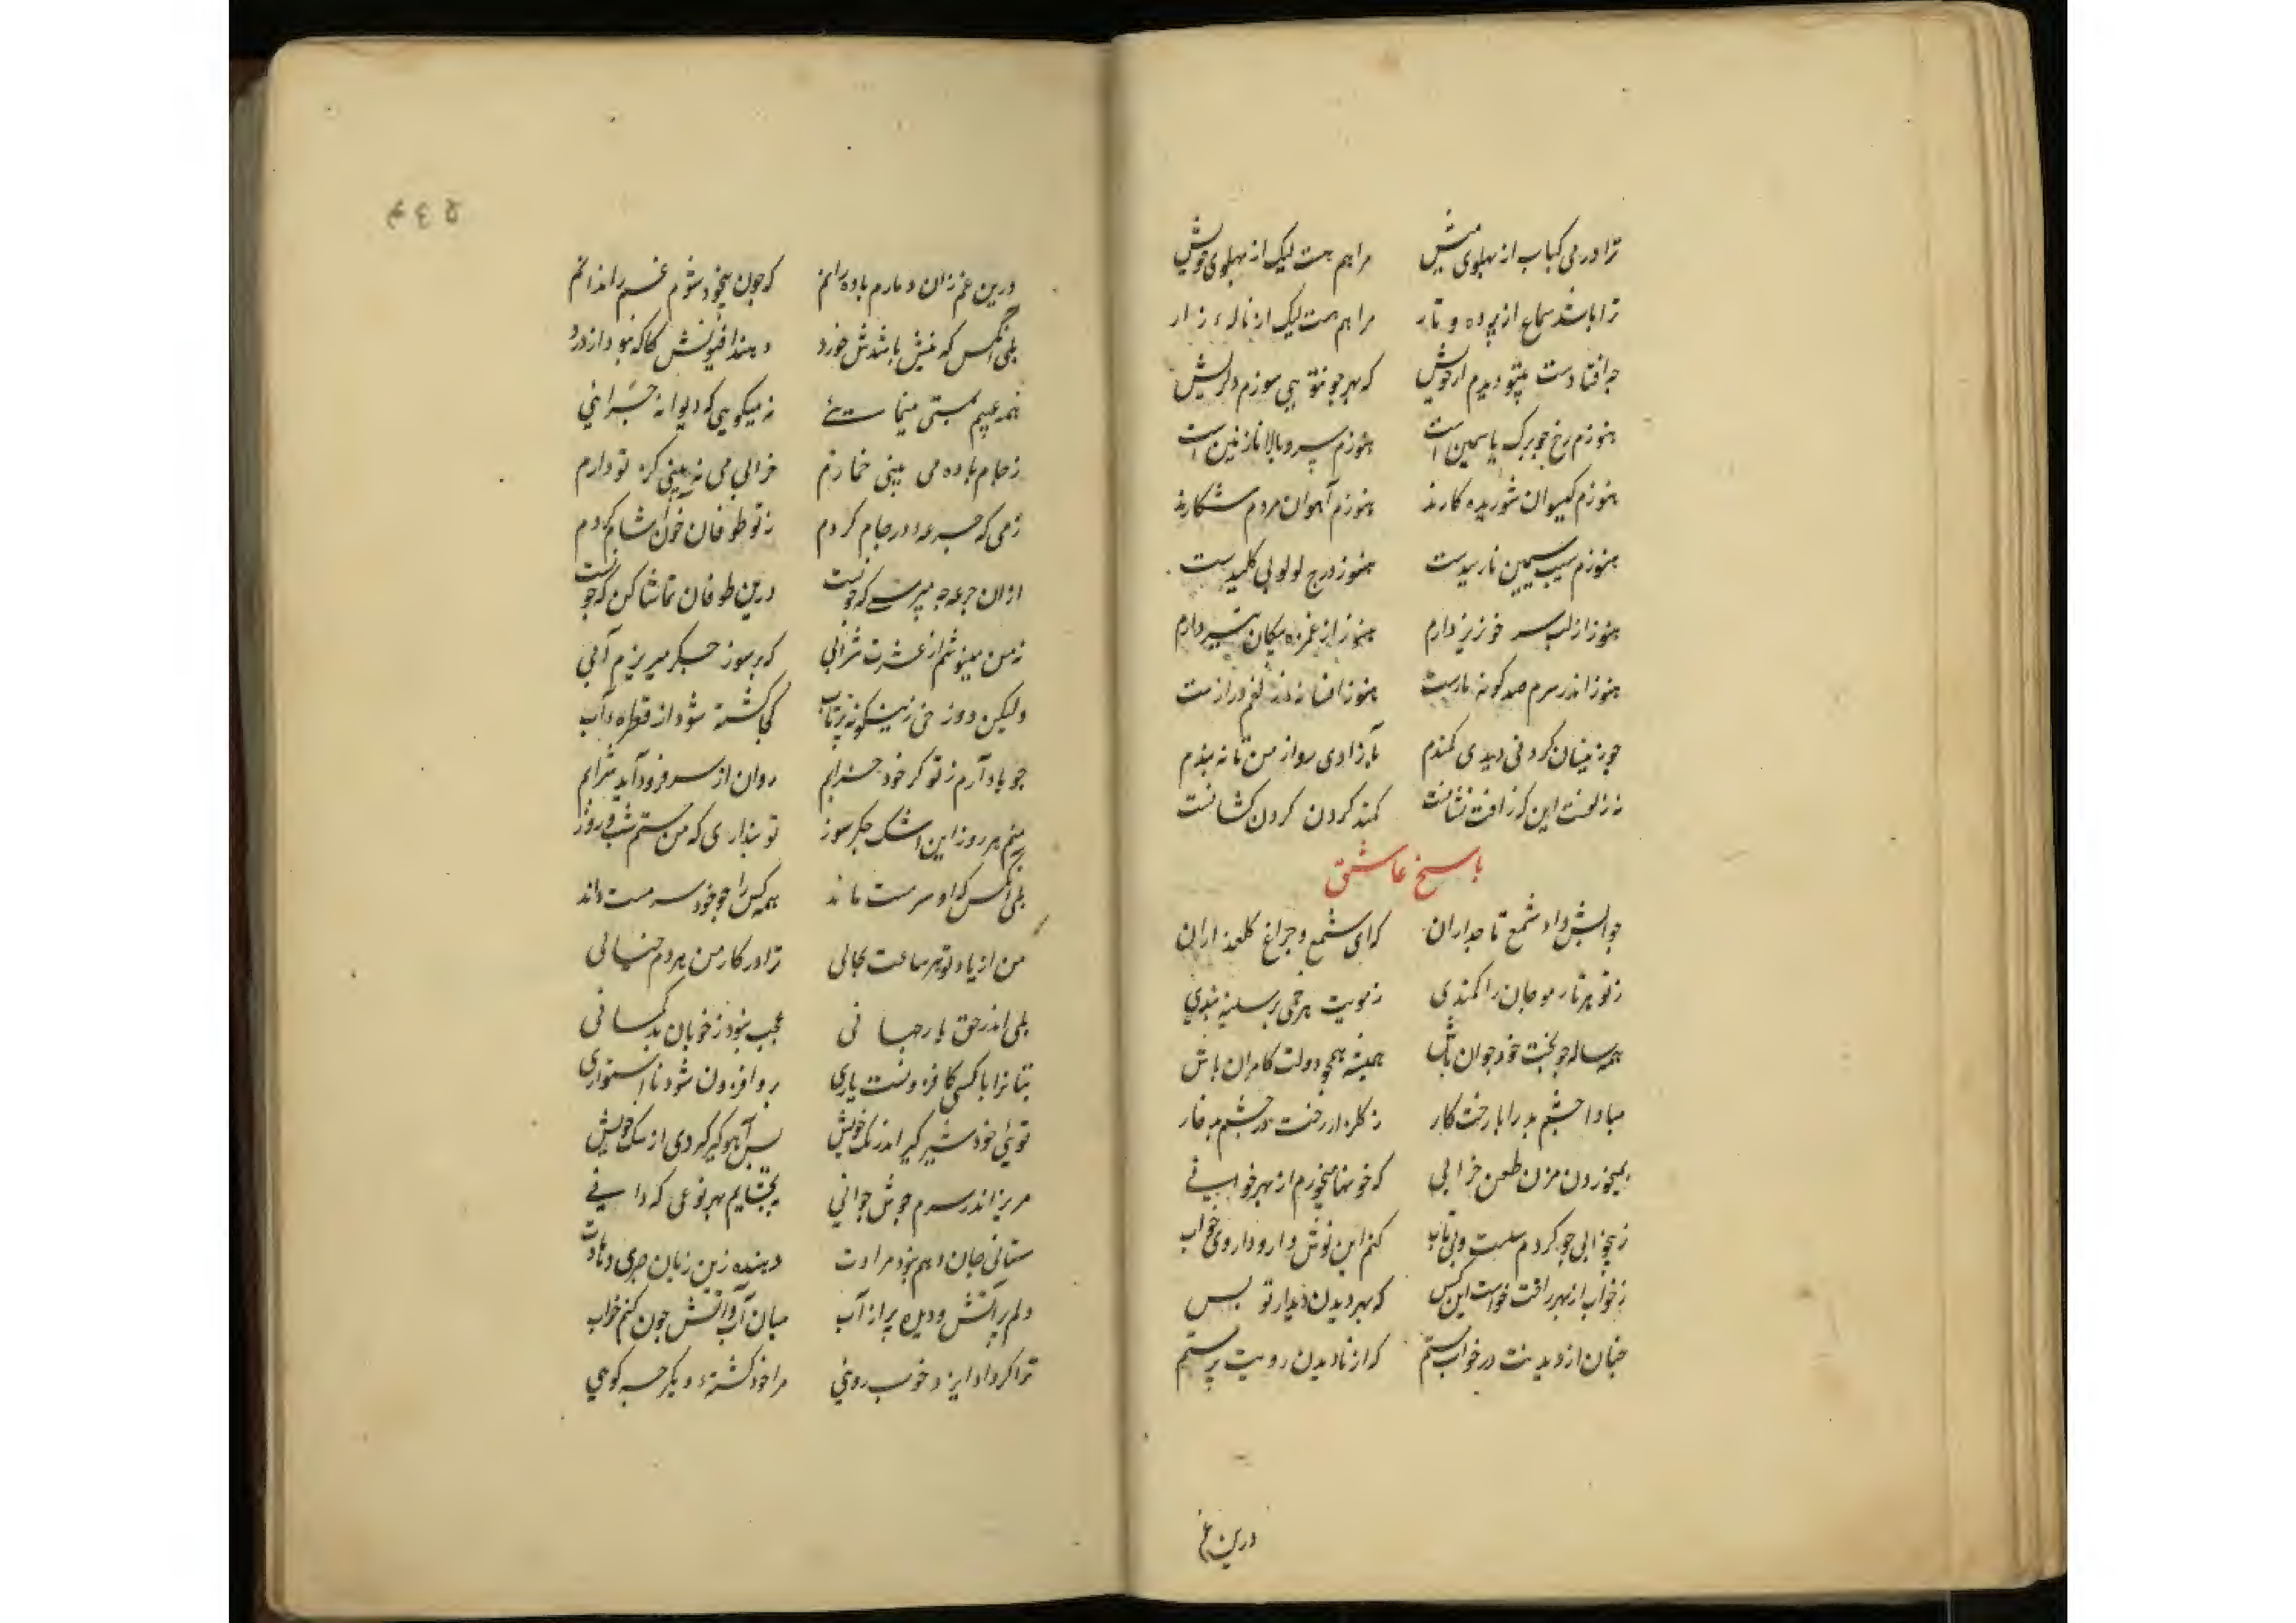 ترا در می کباب از پهلوی میش مرا هم هست لیک از پهلوی خویش
ترا باشد سماع از پرده و تار مرا هم هست لیک از ناله زار
چه افتادست بیتو دیدم از خویش که بهر چو توئی سوزم دل ریش
هنوزم رخ چو برک یاسمین است هنوزم سرو بالا نازنین است
هنوزم کیسوان شوریده کارند هنوزم آهوان مردم شکارند
هنوزم سیب سیمین نارسیدست هنوز درج لولو بی کلیدست
هنوز از لب سر خونریز دارم هنوز از غمزه پیکان تیز دارم
هنوز اندر سرم صد کونه نازست هنوز افسانه زلفم درازست
چو زینسان کردنی دیدی کمندم بآزادی مرو از من تا نه بندم
نه زلفست این کز آفت نشانست کمند کردن کردن کشانست
پاسخ عاشق
جوابش داد شمع تاجداران که ای شمع و چراغ کلعذاران
ز تو هر تار مو جان را کمندی ز مویت هر خمی بر سینه بندی
همه ساله چو بخت خود جوان باش همیشه همچو دولت کامران باش
مبادا چشم بد را با رخت کار ز کلزار رخت در چشم بد خار
بمیخوردن مزن طعن خرابی که خونها میخورم از بهر خوابی
ز بیخوابی چو کردم سست و بی تاب کنم این نوش دارو داروی خواب
نه خواب از بهر راحت خواست این کس که بهر دیدن دیدار تو بس
چنان از دیدنت در خواب مستم که از نادیدن رویت پرستم
درین غم
درین غم زان دمادم باده رانم که چون بیخود شوم غم را ندانم
بلی آنکس که نیش باشدش خورد دهند افیونش تا که نبود از درد
همه عیبم بمستی مینمائی نه میکویی که دیوانه چرایی
ز جام باده می بینی خمارم خرابی می نه بینی کز تو دارم
ز می که جرعه در جام کردم ز تو طوفان خون آشام کردم
ازان جرعه چه پرسی که چونست درین طوفان تماشا کن که چونست
نه من مینوشم از عشرت شرابی که بر سوز جکر میریزم آبی
ولیکن دوزخی زینکونه پرتاب کجا کشته شود از قطره آب
چو یاد آرم ز تو کر خود خرابم روان از سر فرود آید شرابم
بریزم هر روز این اشک جکر سوز تو پنداری که من مستم شب و روز
بلی آنکس که او سرمست ماند همه کس را چو خود سرمست داند
من از یاد تو هر ساعت بحالی ترا در کار من هر دم خیالی
بلی اندر حق یار جانی عجب نبود ز خوبان بدکمانی
بتانرا با کسی کافزونست یاری برو افزون شود نااستواری
توئی خود شیر کیر اندر تک خویش پس آهو کیر کردی از سک خویش
مریز اندر سرم جوش جوانی ببخشایم بهر نوعی که دانی
ستانی جان دهم نبود مرادت دهنده زین زیان چیزی دهادت
دلم پر آتش و دیده پر از آب میان آب و آتش چون کنم خواب
ترا کر داد ایزد خوب رویی مرا خود کشته دیکر چه کویی